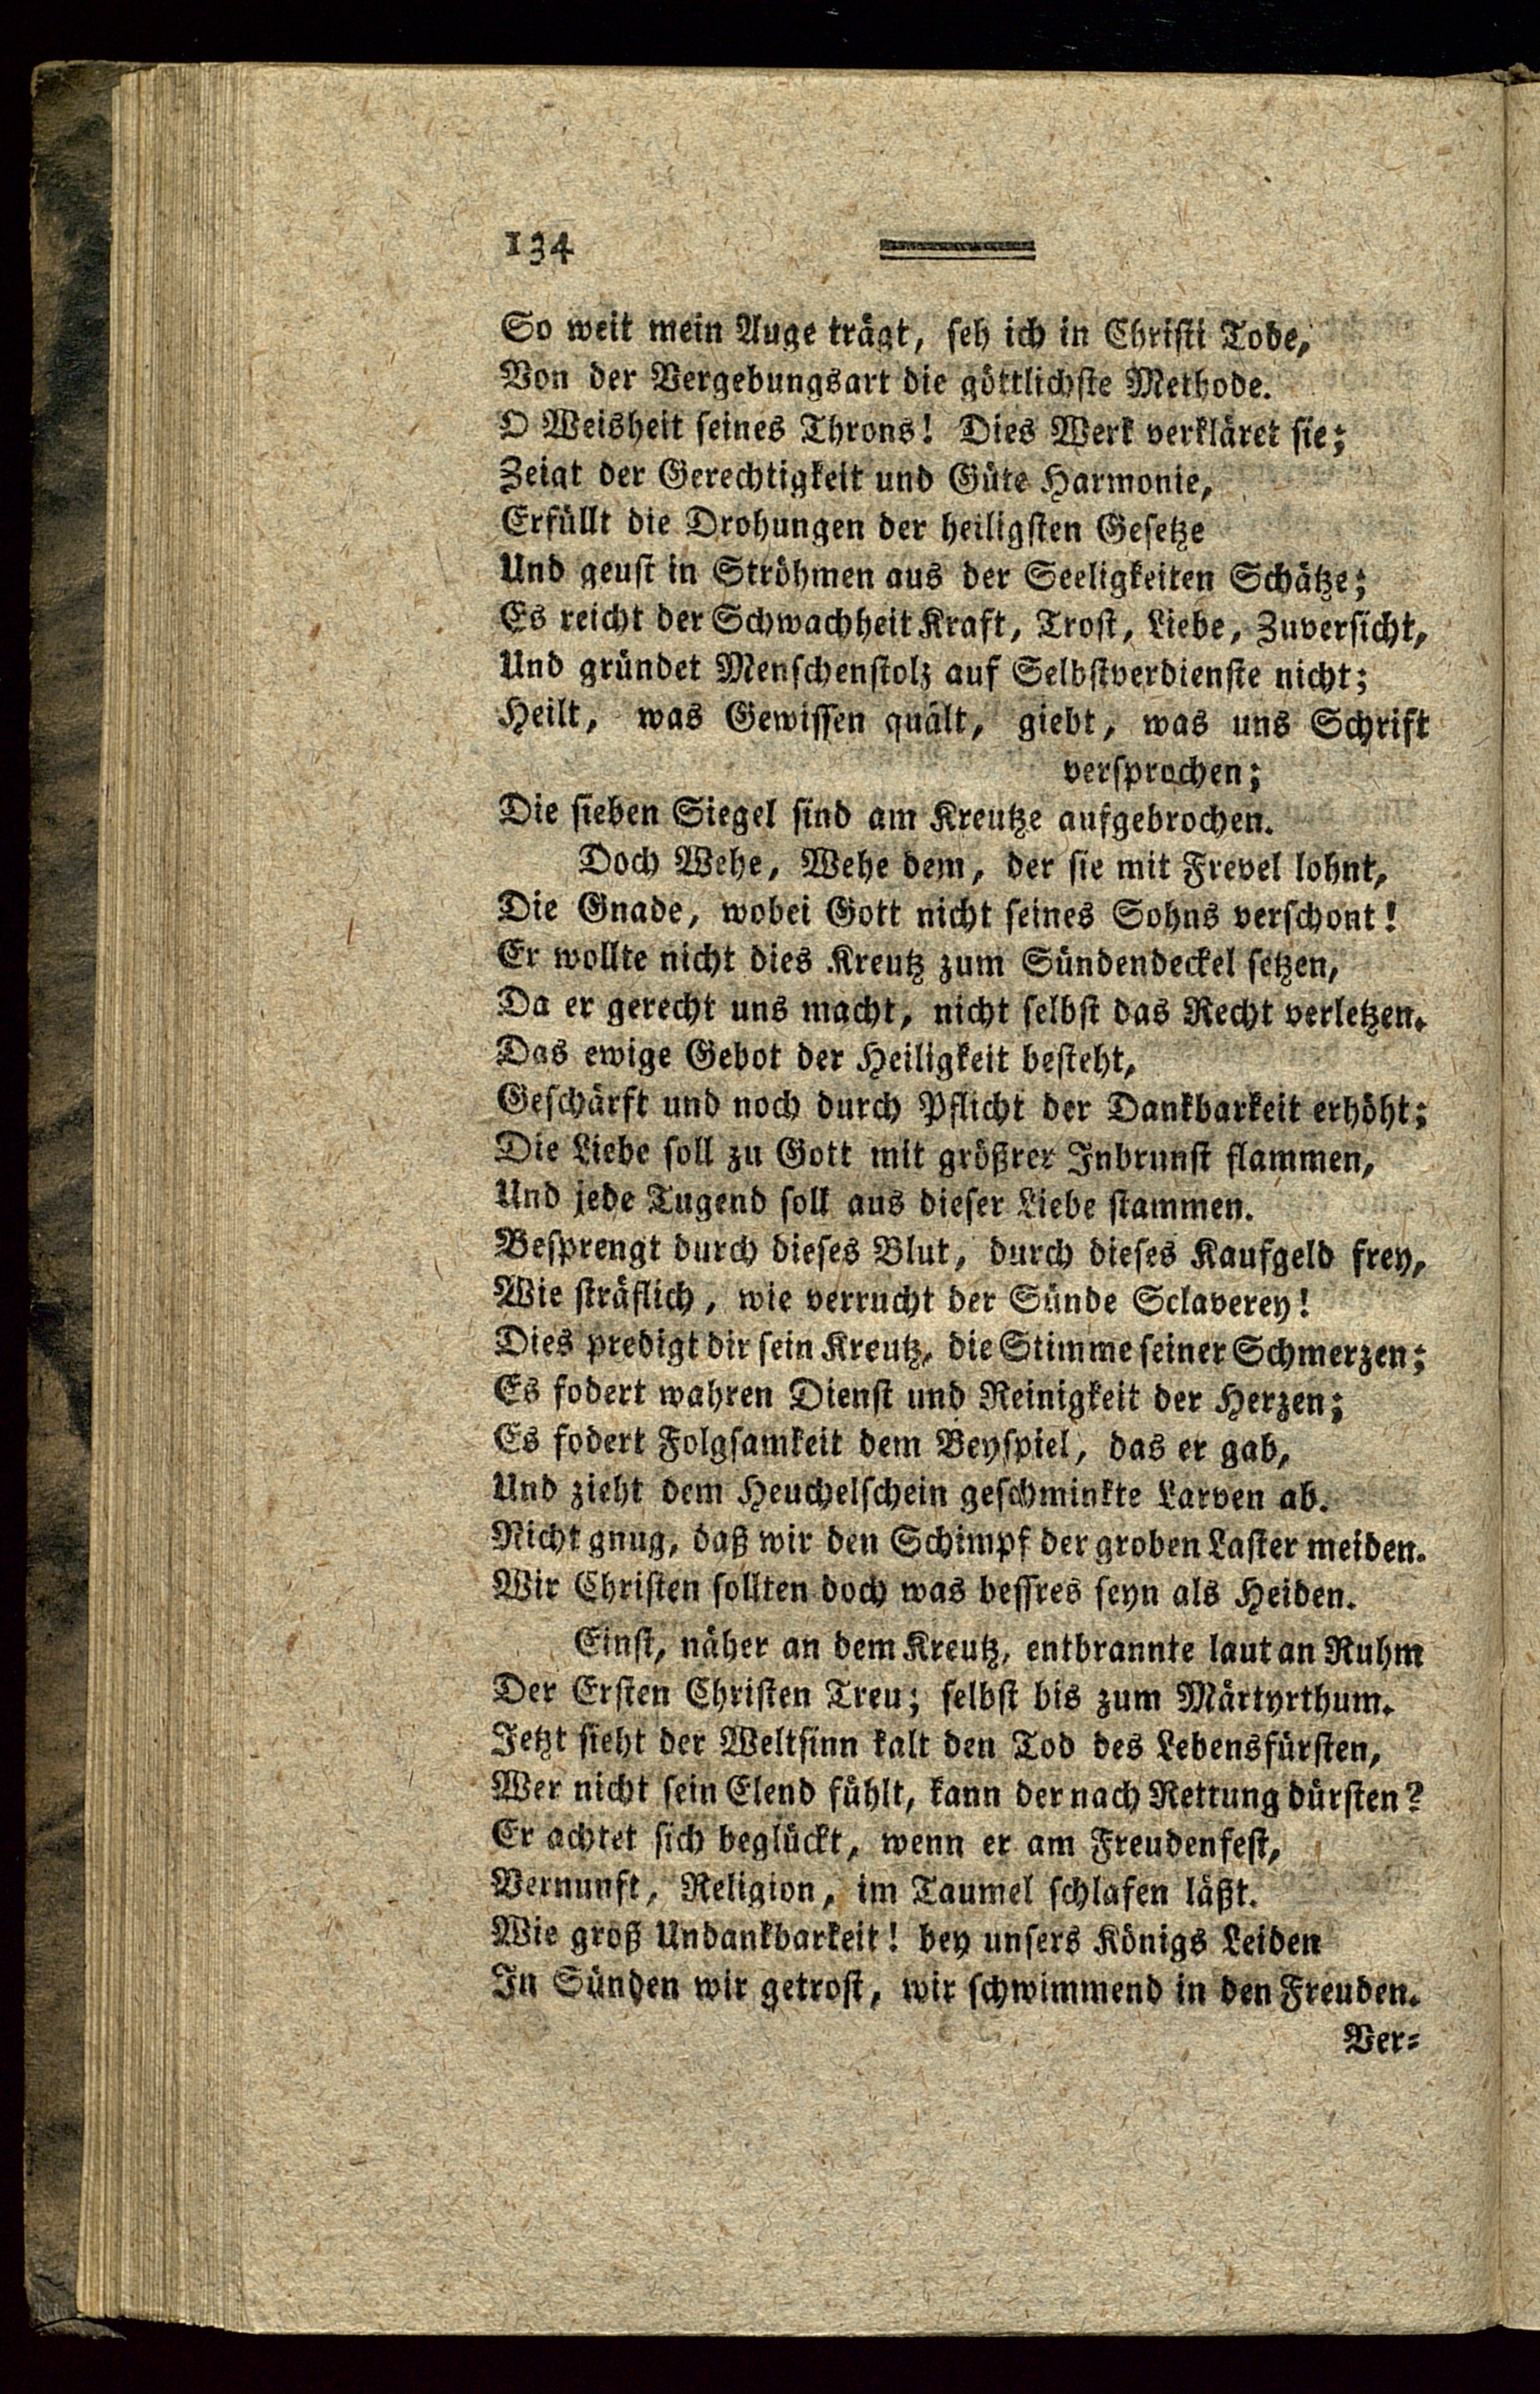 134
So weit mein Auge trägt, seh ich in Christi Tode,
Von der Vergebungsart die göttlichste Methode.
O Weisheit seines Throns! Dies Werk verkläret sie;
Zeigt der Gerechtigkeit und Güte Harmonie,
Erfüllt die Drohungen der heiligsten Gesetze
Und geust in Ströhmen aus der Seeligkeiten Schätze;
Es reicht der Schwachheit Kraft, Trost, Liebe, Zuversicht,
Und gründet Menschenstolz auf Selbstverdienste nicht;
Heilt, was Gewissen quält, giebt, was uns Schrift
versprochen;
Die sieben Siegel sind am Kreutze aufgebrochen.
Doch Wehe, Wehe dem, der sie mit Frevel lohnt,
Die Gnade, wobei Gott nicht seines Sohns verschont!
Er wollte nicht dies Kreutz zum Sündendeckel setzen,
Da er gerecht uns macht, nicht selbst das Recht verletzen.
Das ewige Gebot der Heiligkeit besteht,
Geschärft und noch durch Pflicht der Dankbarkeit erhöht;
Die Liebe soll zu Gott mit größrer Inbrunst flammen,
Und jede Tugend soll aus dieser Liebe stammen.
Besprengt durch dieses Blut, durch dieses Kaufgeld frey,
Wie sträflich, wie verrucht der Sünde Sclaverey!
Dies predigt dir sein Kreutz, die Stimme seiner Schmerzen;
Es fodert wahren Dienst und Reinigkeit der Herzen;
Es fodert Folgsamkeit dem Beyspiel, das er gab,
Und zieht dem Heuchelschein geschminkte Larven ab.
Nicht gnug, daß wir den Schimpf der groben Laster meiden.
Wir Christen sollten doch was bessres seyn als Heiden.
Einst, näher an dem Kreutz, entbrannte laut an Ruhm
Der Ersten Christen Treu; selbst bis zum Märtyrthum.
Jetzt sieht der Weltsinn kalt den Tod des Lebensfürsten,
Wer nicht sein Elend fühlt, kann der nach Rettung dürsten?
Er achtet sich beglückt, wenn er am Freudenfest,
Vernunft, Religion, im Taumel schlafen läßt.
Wie groß Undankbarkeit! bey unsers Königs Leiden
In Sünden wir getrost, wir schwimmend in den Freuden.
Ver-